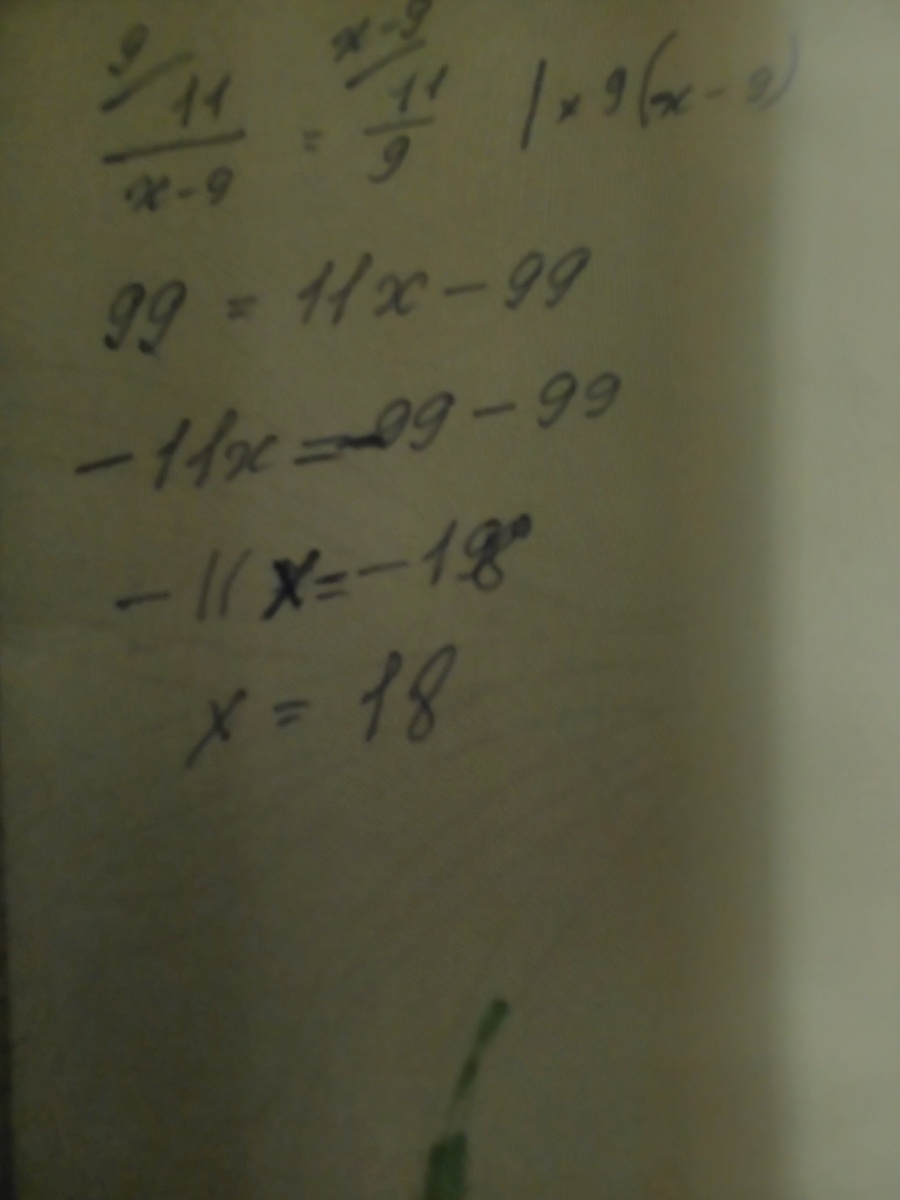 9/ 11 / x-9 = x-9/ 11 / 9 | × 9(x-9)
99 = 11x - 99
-11x = -99 - 99
-11x = -198
x = 18